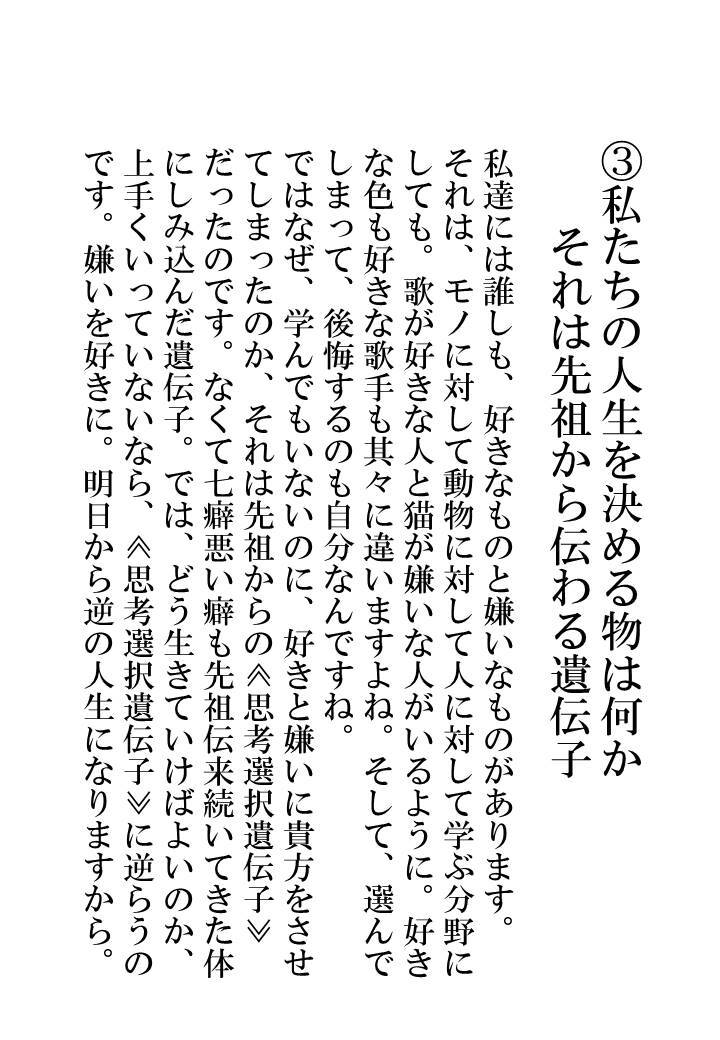 ③私たちの人生を決める物は何か
それは先祖から伝わる遺伝子
私達には誰しも、好きなものと嫌いなものがあります。
それは、モノに対して動物に対して人に対して学ぶ分野に
しても。歌が好きな人と猫が嫌いな人がいるように。好き
な色も好きな歌手も其々に違いますよね。そして、選んで
しまって、後悔するのも自分なんですね。
ではなぜ、学んでもいないのに、好きと嫌いに貴方をさせ
てしまったのか、それは先祖からの≪思考選択遺伝子≫
だったのです。なくて七癖悪い癖も先祖伝来続いてきた体
にしみ込んだ遺伝子。では、どう生きていけばよいのか、
上手くいっていないなら、≪思考選択遺伝子≫に逆らうの
です。嫌いを好きに。明日から逆の人生になりますから。